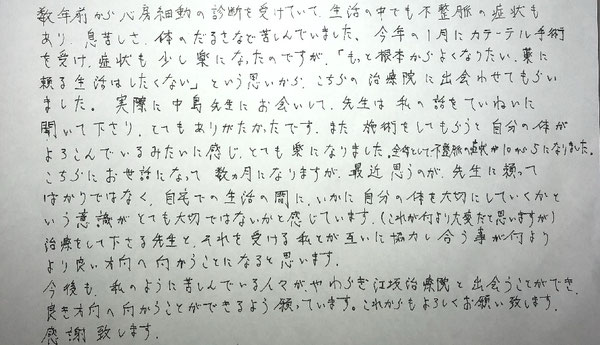 数年前から心房細動の診断を受けていて、生活の中でも不整脈の症状も
あり、息苦しさ、体のだるさなど苦しんでいました、今年の1月にカテーテル手術
を受け、症状も少し楽になったのですが、「もっと根本からよくなりたい、薬に
頼る生活はしたくない」という思いから、こちらの治療院に出会わせてもらい
ました。実際に中島先生にお会いして、先生は私の話をていねいに
聞いて下さり、とてもありがたかったです、また施術をしてもらうと自分の体が
よろこんでいるみたいに感じ、とても楽になりました。全体として不整脈の症状が10から5になりました。
こちらにお世話になって数ヵ月になりますが、最近思うのが、先生に頼って
ばかりではなく、自宅での生活の間に、いかに自分の体を大切にしていくかと
いう意識がとても大切ではないかと感じています、(これが何より大変だと思いますが)
治療をして下さる先生と、それを受ける私とが互いに協力し合う事が何より
より良い方向へ向かうことになると思います。
今後も、私のように苦しんでいる人々が、やわらぎ江坂治療院と出会うことができ、
良き方向へ向かうことができるよう願っています。これからもよろしくお願い致します、
感謝致します、